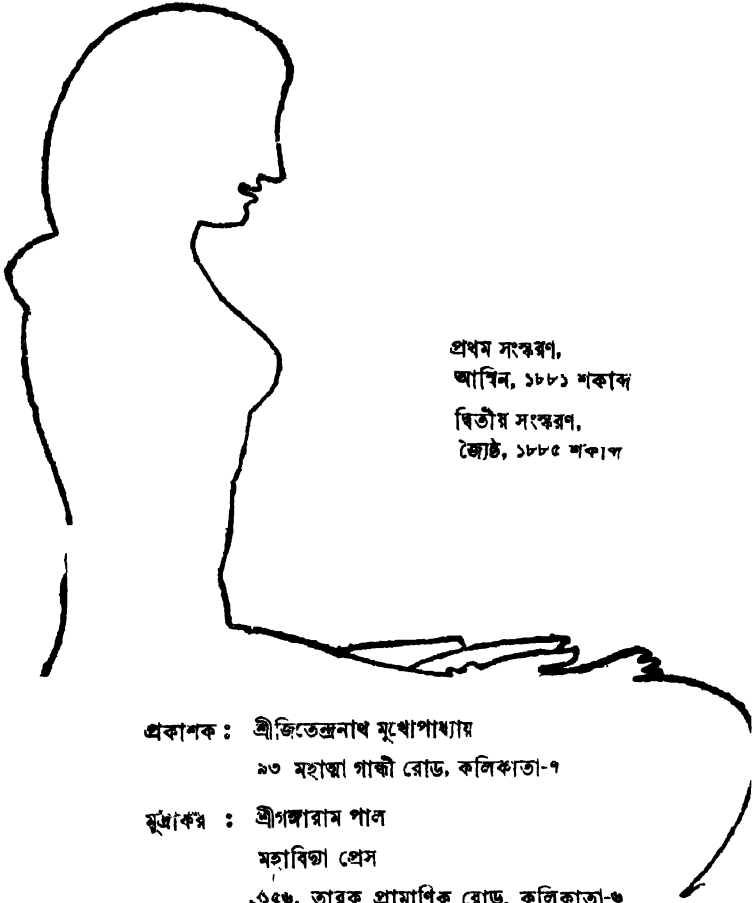 প্রথম সংস্করণ,
আশ্বিন, ১৮৮১ শকাব্দ
দ্বিতীয় সংস্করণ,
জ্যৈষ্ঠ, ১৮৮৫ শকাব্দ
প্রকাশক : শ্রীজিতেন্দ্রনাথ মুখোপাধ্যায়
৯৩ মহাত্মা গান্ধী রোড, কলিকাতা-৭
মুদ্রাকর : শ্রীগঙ্গারাম পাল
মহাবিদ্যা প্রেস
তারক প্রামাণিক রোড, কলিকাতা-৬